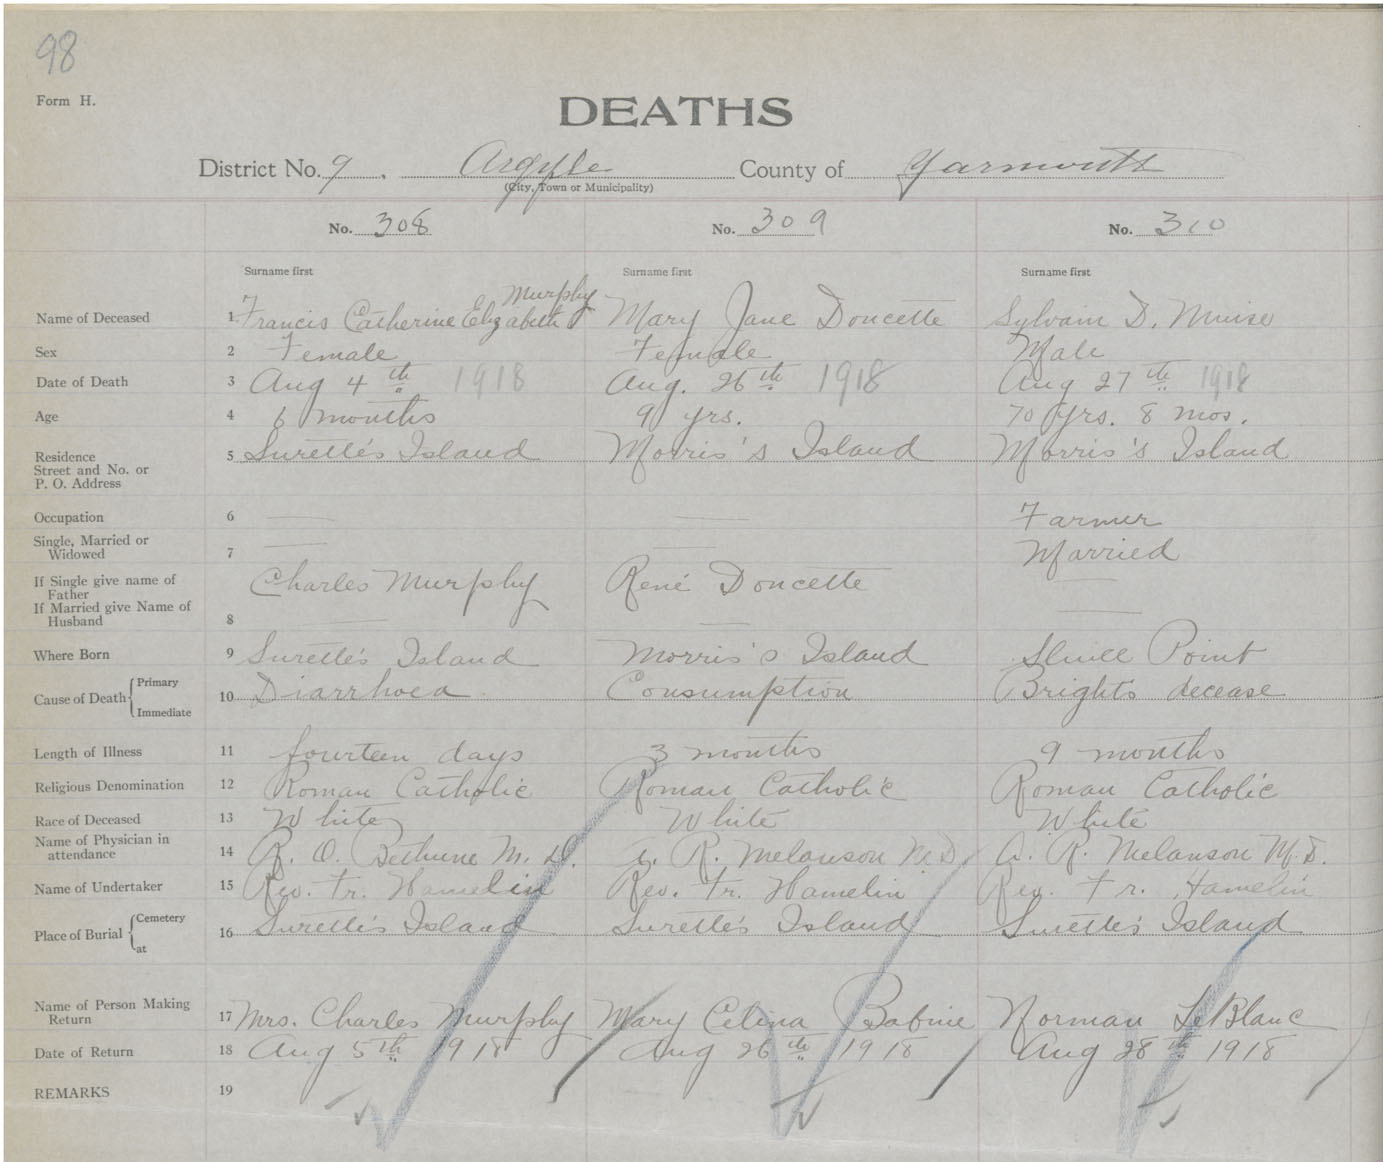 98
Form H.
DEATHS
District No. 9. Argyle County of Yarmouth
(City, Town or Municipality)
No. 308 No. 309 No. 310
Surname first Surname first Surname first
Murphy
Name of Deceased 1 Francis Catherine Elizabeth Mary Jane Doucette Sylvain D. Muise
Sex 2 Female Female Male
Date of Death 3 Aug 4th 1918 Aug. 26th 1918 Aug 27th 1918
Age 4 6 months 9 yrs. 70 yrs. 8 mos.
Residence 5 Surette's Island Morris's Island Morris's Island
Street and No. or
P. O. Address
Occupation 6 Farmer
Single, Married or
Widowed 7 Married
If Single give name of
Father Charles Murphy René Doucette
If Married give Name of
Husband 8
Where Born 9 Surette's Island Morris's Island Sluice Point
Cause of Death Primary 10 Diarrhoea Consumption Bright's decease
Immediate
Length of Illness 11 fourteen days 3 months 9 months
Religious Denomination 12 Roman Catholic Roman Catholic Roman Catholic
Race of Deceased 13 White White White
Name of Physician in
attendance 14 R. O. Bethune M. D. A. R. Melanson M.D. A. R. Melanson M.D.
Name of Undertaker 15 Rev. Fr. Hamelin Rev. Fr. Hamelin Rev. Fr. Hamelin
Place of Burial Cemetery 16 Surette's Island Surette's Island Surette's Island
at
Name of Person Making
Return 17 Mrs. Charles Murphy Mary Celina Babine Norman LeBlanc
Date of Return 18 Aug 5th 1918 Aug 26th 1918 Aug 28th 1918
REMARKS 19